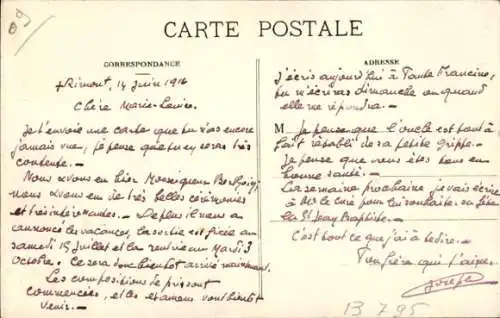 09
CARTE POSTALE
CORRESPONDANCE
ADRESSE
+ Rimont, 14 Juin 1916
Chère Marie-Louise.
Je t'envoie une carte que tu n'as encore
jamais vue, je pense que tu en seras très
contente. -
Nous avons eu hier Monseigneur
nous avons eu de très belles cérémonies
et très intéressantes. - De plus il nous a
annoncé les vacances, la sortie est fixée au
samedi 15 Juillet et la rentrée au Mardi 3
Octobre. Ce sera donc bientôt arrivé maintenant.
Les compositions de prix sont
commencées, et les examens vont bientôt
venir. -
j'écris aujourd'hui à Tante Francine,
tu m'écriras dimanche ou quand
elle me répondra. -
M Je pense que l'oncle est tout à
fait rétabli de sa petite grippe.
Je pense que vous êtes tous en
bonne santé. -
La semaine prochaine je vais écrire
à Mr le curé pour lui souhaiter sa fête
la St Jean Baptiste. -
C'est tout ce que j'ai à te dire. -
Ton frère qui t'aime.
Joseph
B 795